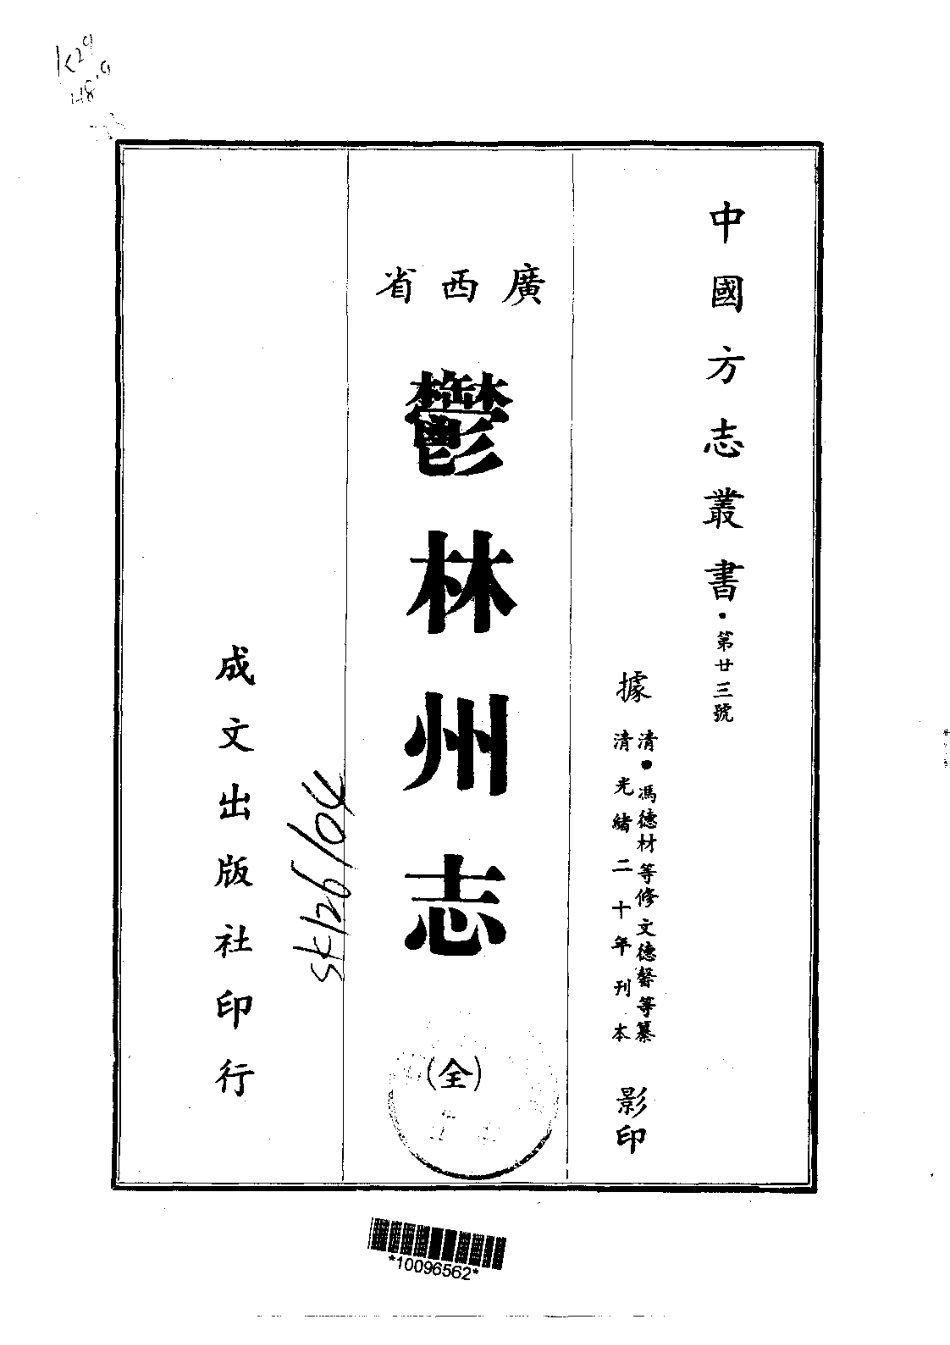 中國方志叢書・第廿三號
據
清・馮德材等修文德馨等纂
清光緒二十年刊本
影印
廣西省
鬱林州志
(全)
成文出版社印行
K29
*10096562*